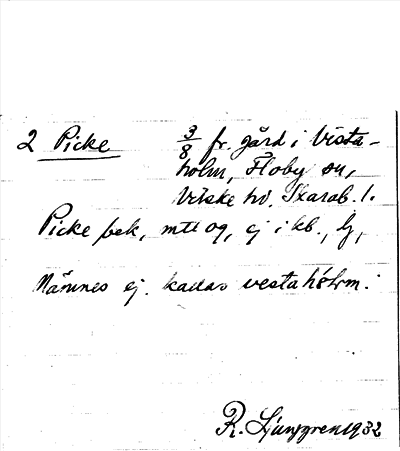 2 Picke 3/8 fr. gård i Vista-
holm, Floby sn,
Vilske hd. Skarab. l.
Picke bek, mtl og, ej i kb.,
Nämnes ej. kallas vestaholm.
R. Ljunggren 1932